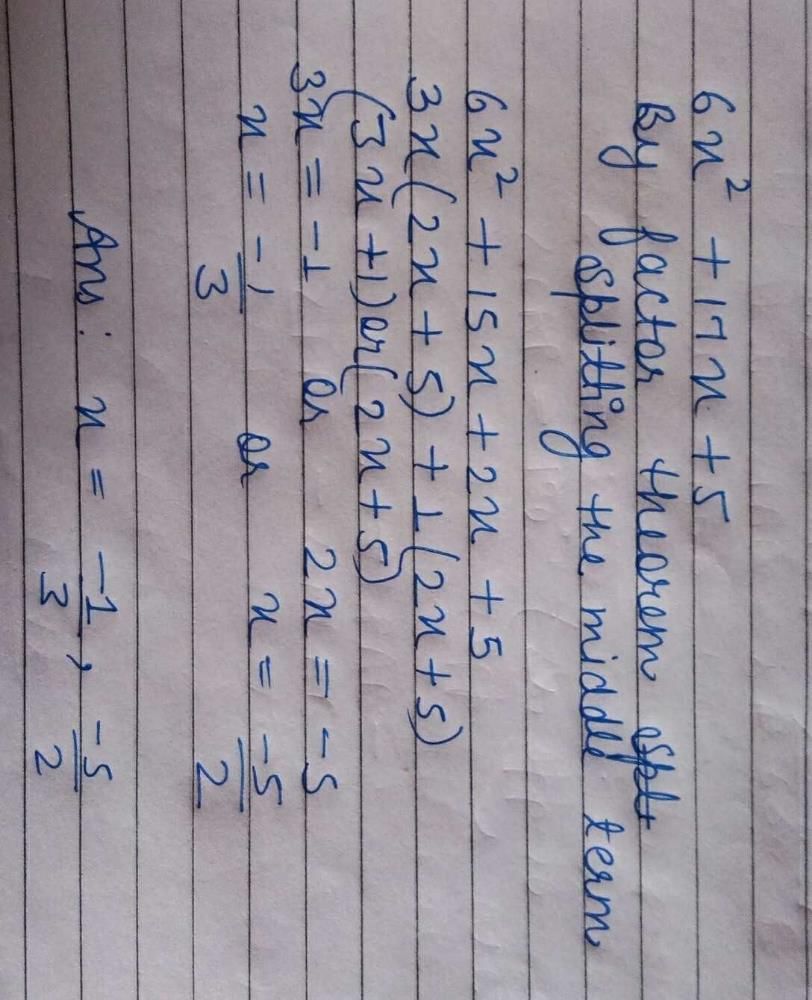 6x² + 17x + 5
By factor theorem Splt
Splitting the middle term
6x² + 15x + 2x + 5
3x(2x + 5) + 1(2x + 5)
(3x + 1) or (2x + 5)
3x = -1 or 2x = -5
x = -1/3 or x = -5/2
Ans: x = -1/3, -5/2